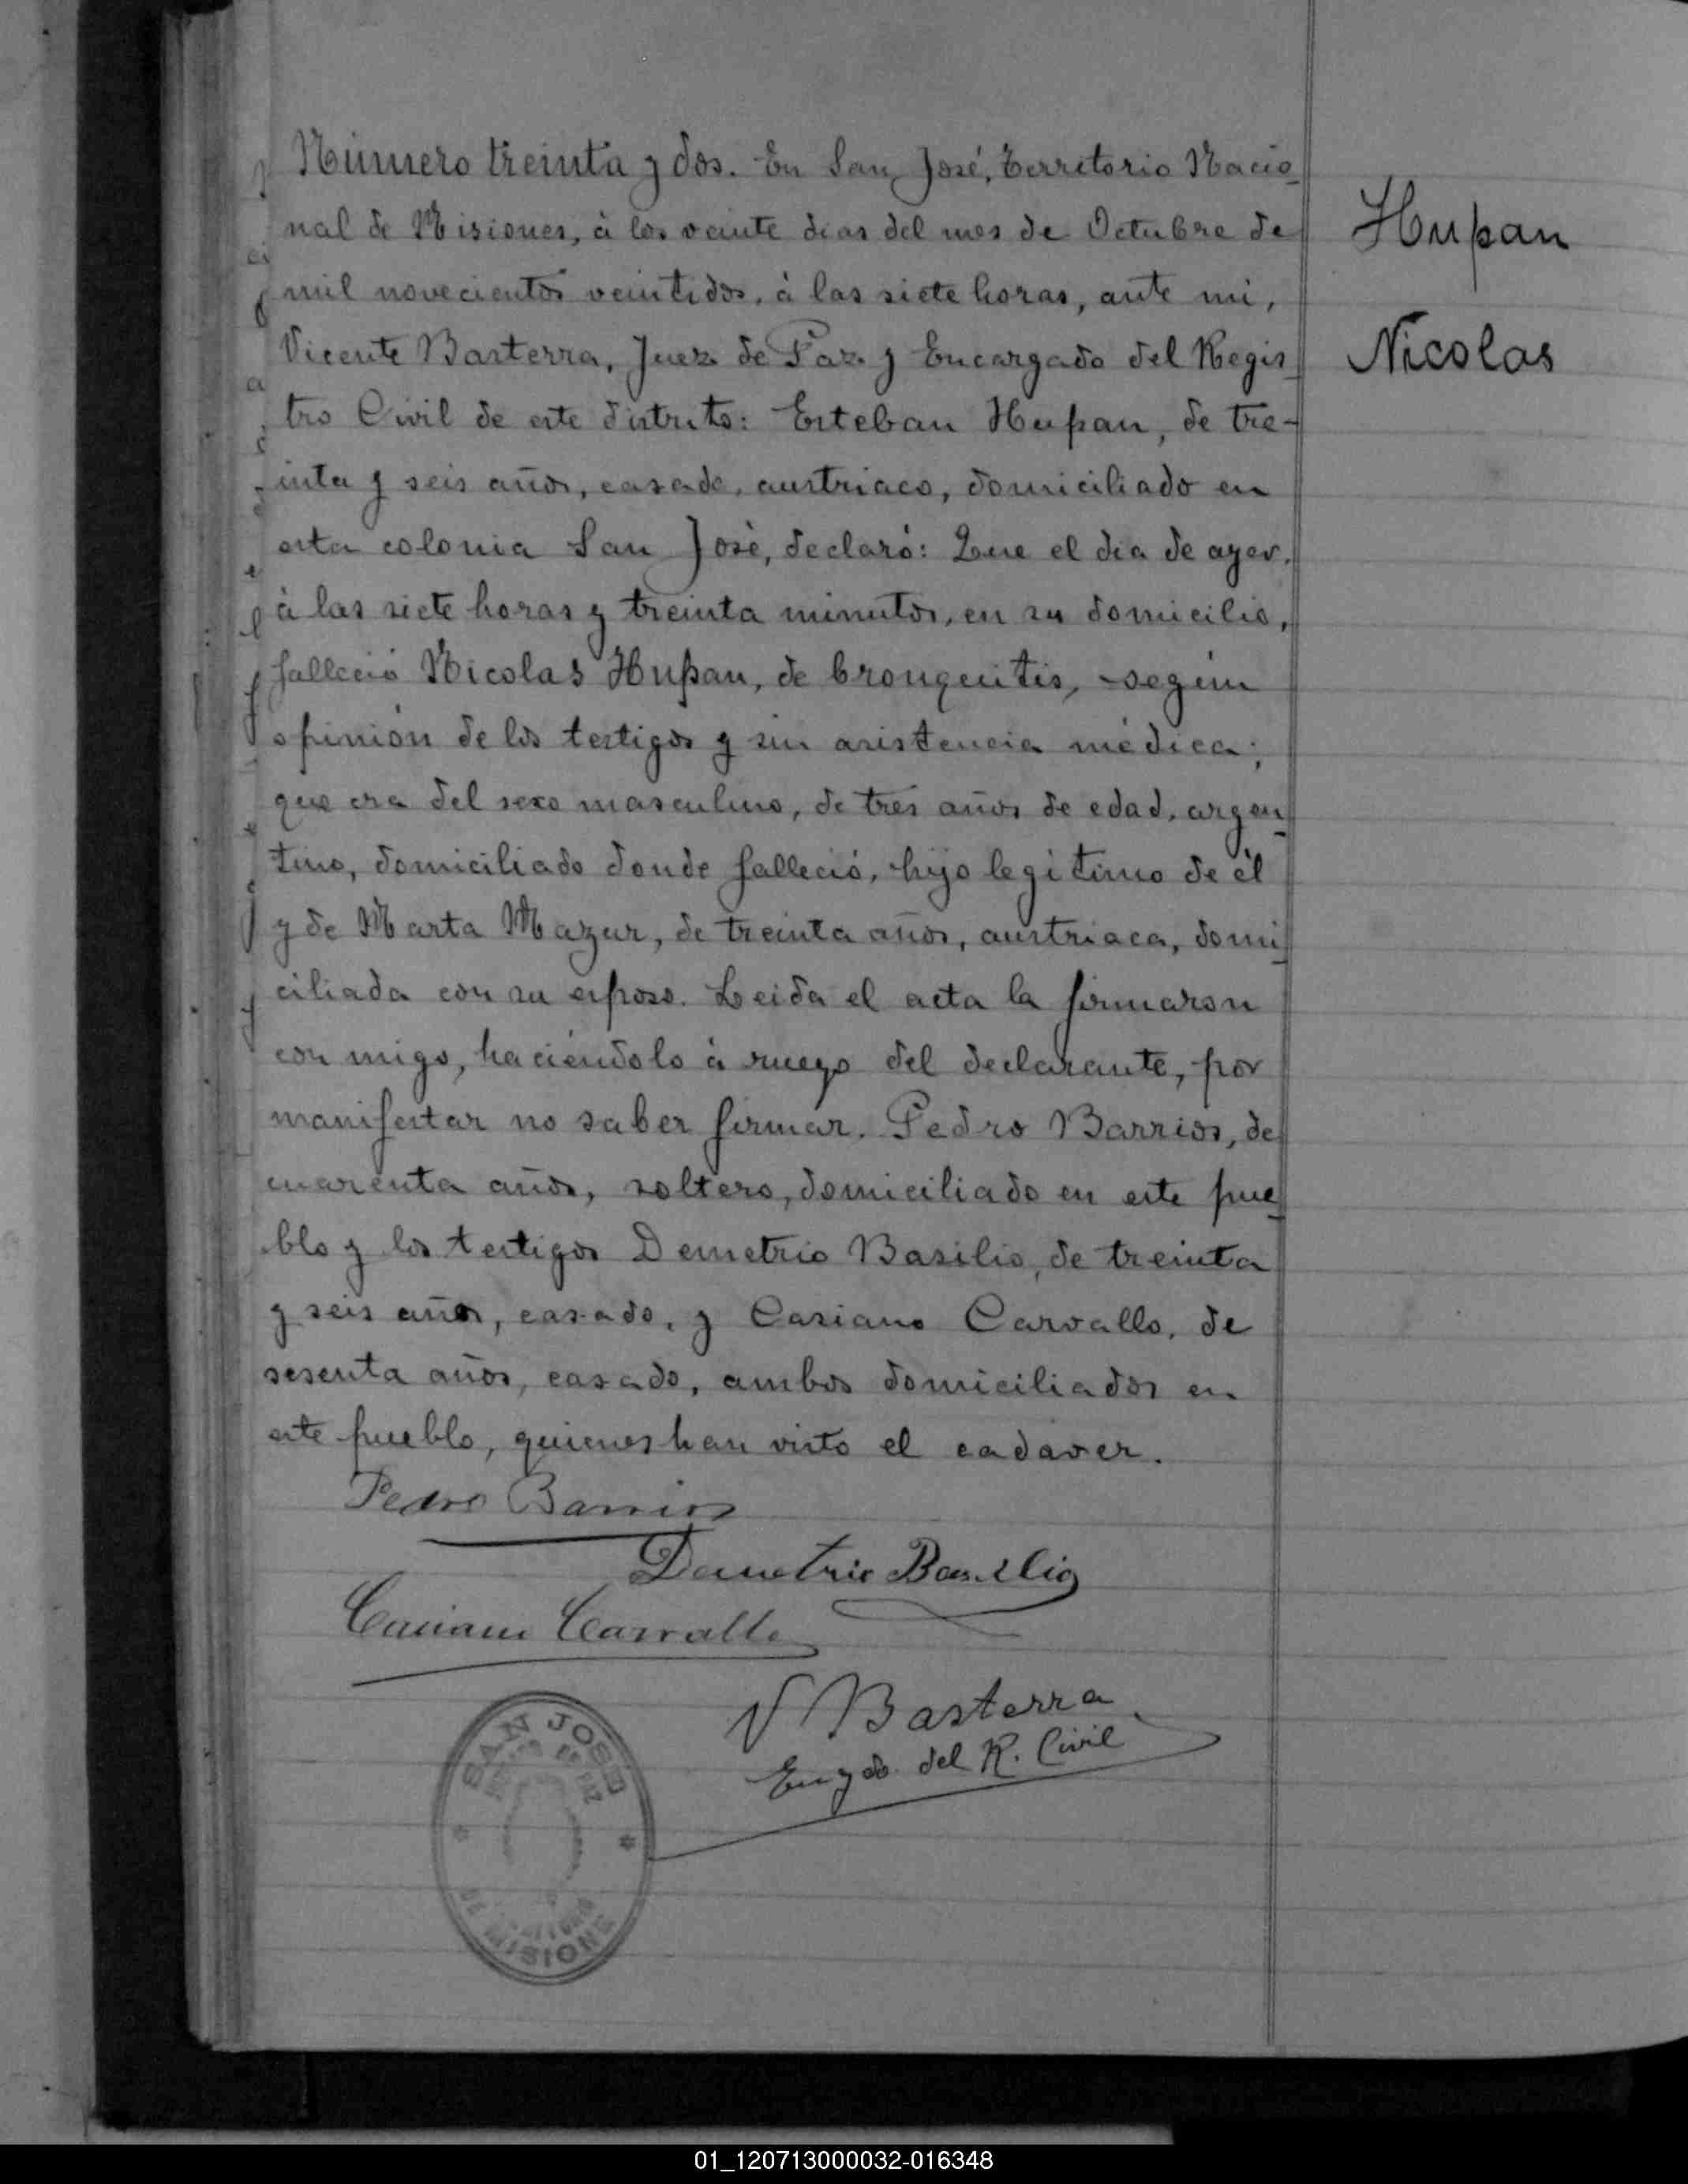 Número treinta y dos. En San José, Territorio Nacio_
nal de Misiones, à los veinte dias del mes de Octubre de
mil novecientos veintidos, à las siete horas, ante mi,
Vicente Basterra, Juez de Paz y Encargado del Regis_
tro Civil de este distrito: Esteban Hupan, de tre-
inta y seis años, casado, austriaco, domiciliado en
esta colonia San José, declaró: Que el dia de ayer,
à las siete horas y treinta minutos, en su domicilio,
falleció Nicolas Hupan, de bronquitis, según
opinión de los testigos y sin asistencia médica;
que era del sexo masculino, de tres años de edad, argen_
tino, domiciliado donde falleció, hijo legítimo de èl
y de Marta Mazur, de treinta años, austriaca, domi_
ciliada con su esposo. Leida el acta la firmaron
con migo, haciéndolo à ruego del declarante, por
manifestar no saber firmar. Pedro Barrios, de
cuarenta años, soltero, domiciliado en este pue_
blo y los testigos Demetrio Basilio, de treinta
y seis años, casado, y Casiano Carvallo, de
sesenta años, casado, ambos domiciliados en
este pueblo, quienes han visto el cadaver.
Pedro Barrios
Demetrio Basilio
Casiano Carvallo
V Basterra
Engdo. del R. Civil
Hupan
Nicolas
SAN JOSE
DE PAZ
MISIONES
01_120713000032-016348